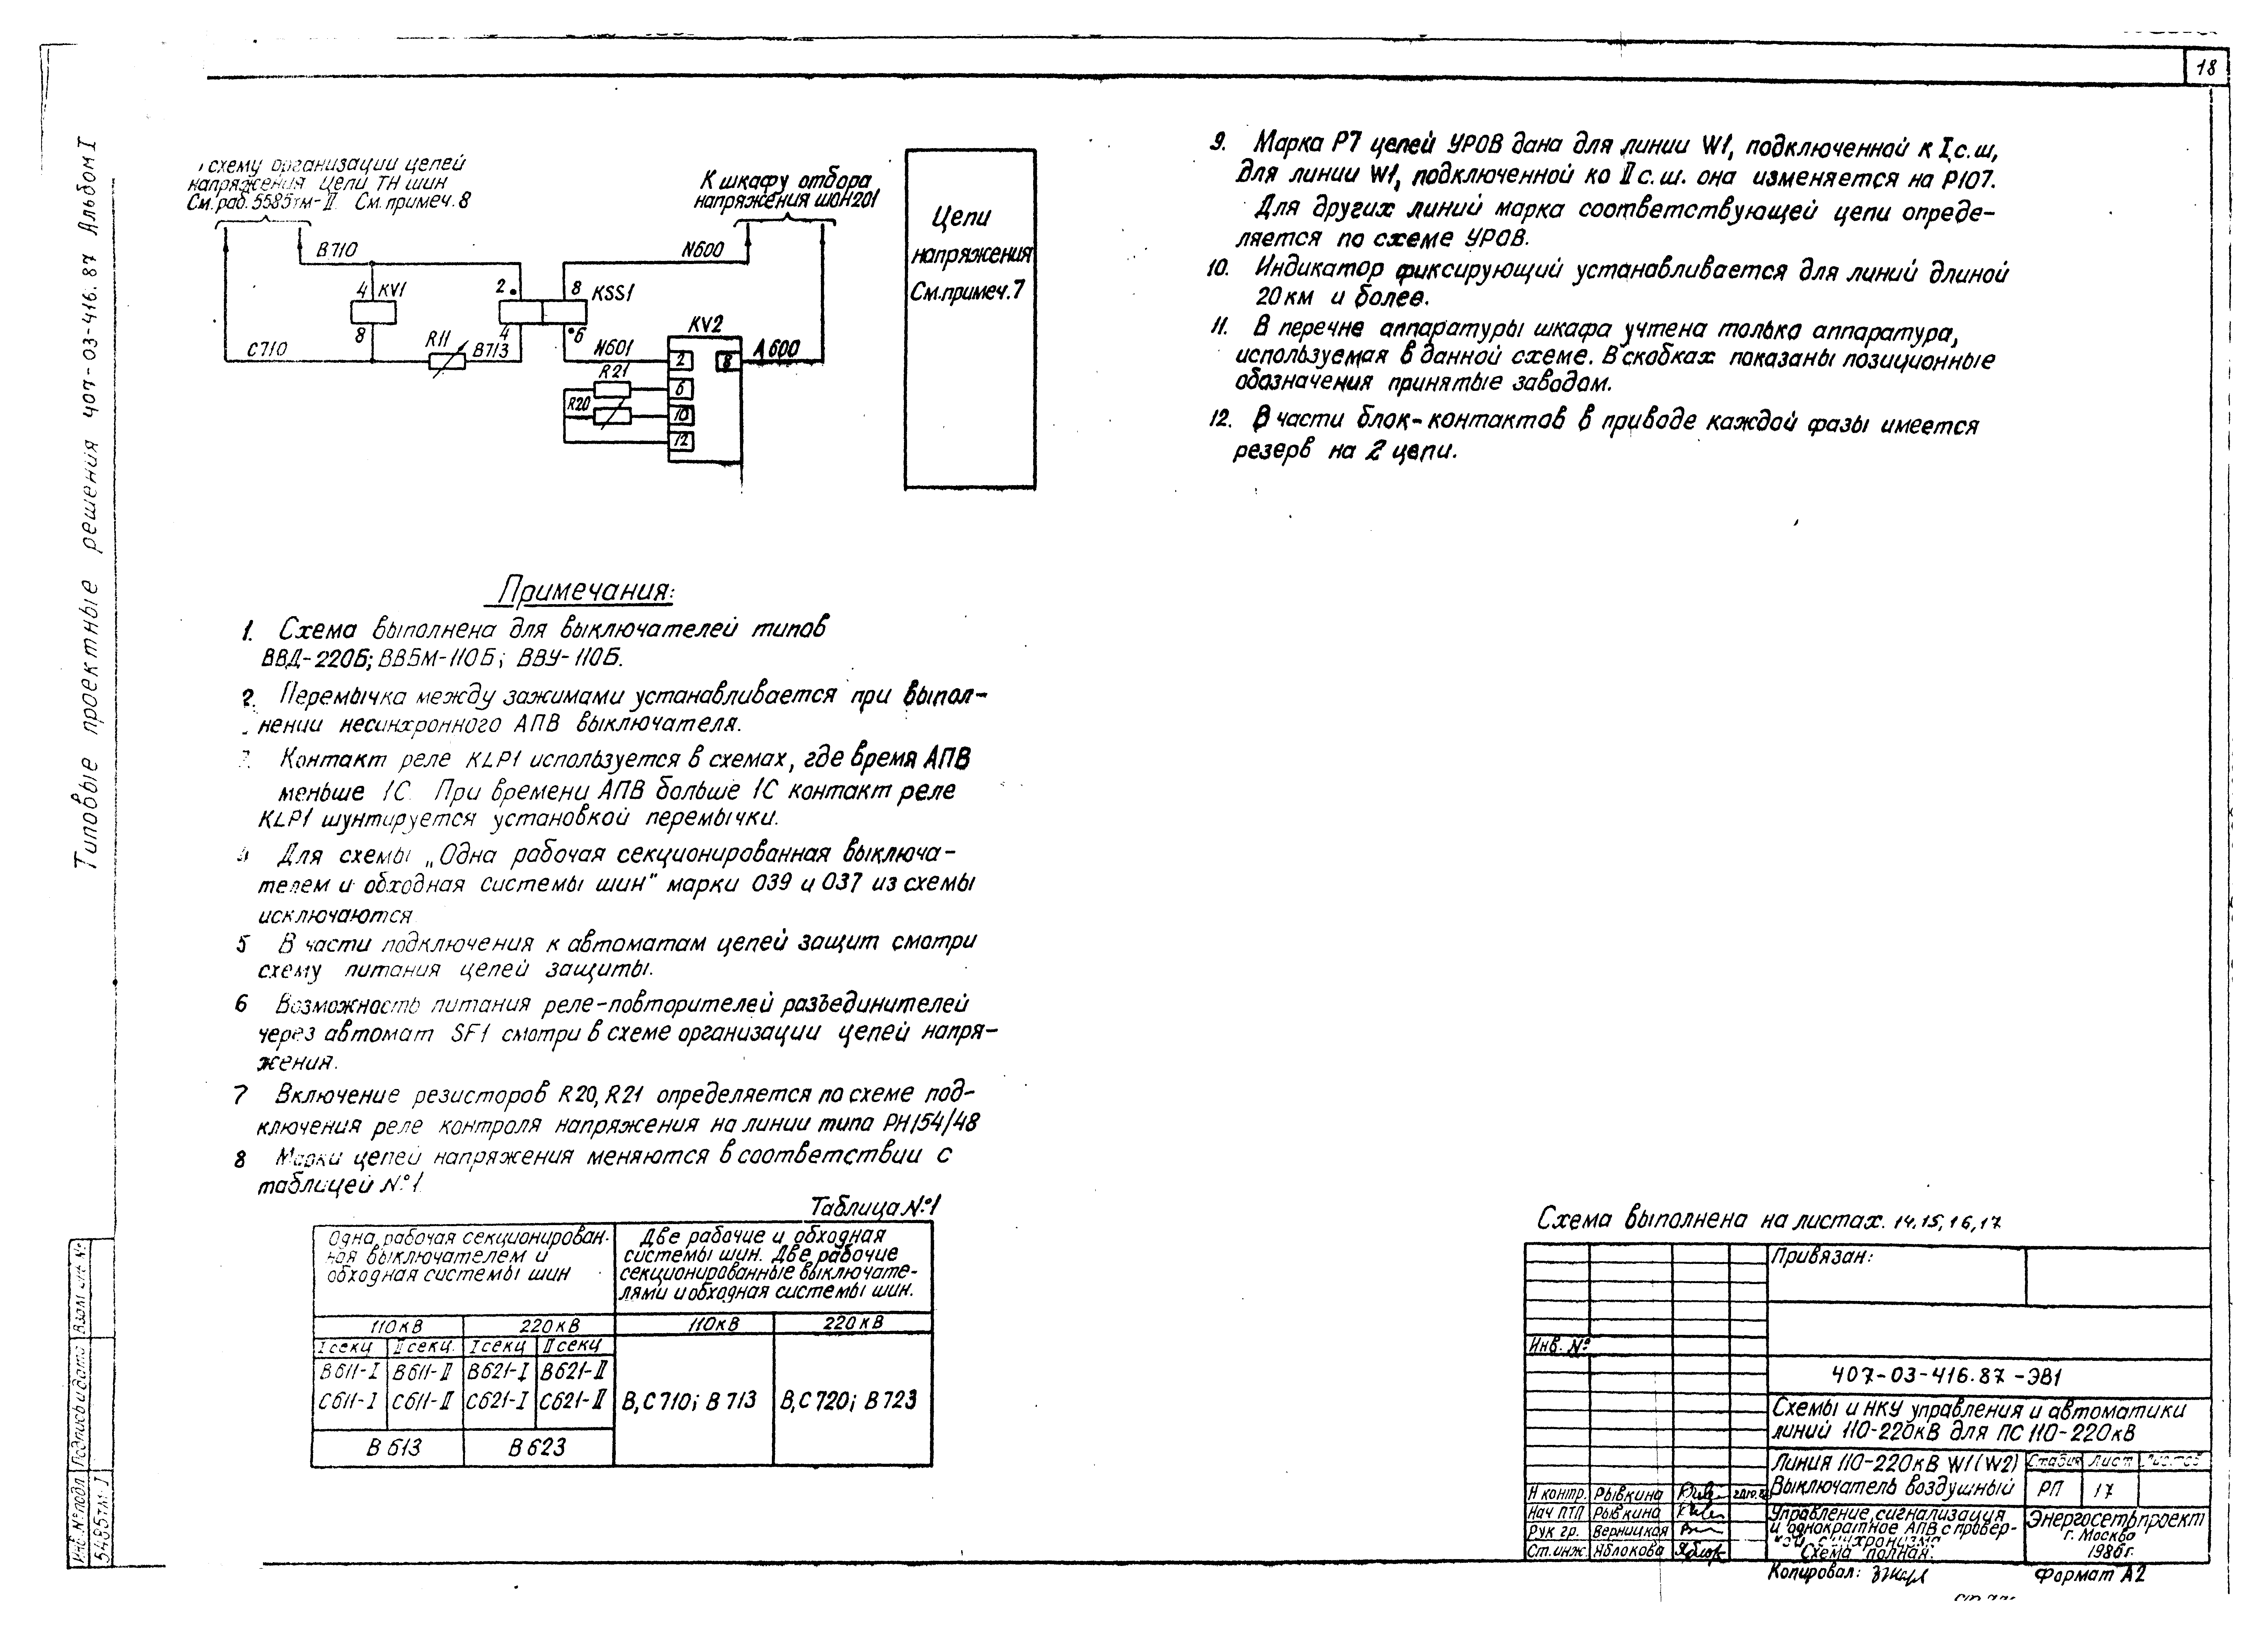 18
Типовые проектные решения 407-03-416.87 Альбом I
схему организации цепей
напряжения цепи ТН шин
См. раб. 5585тм-II. См. примеч. 8
К шкафу отбора
напряжения ШОН201
В710
N600
4 KV1
8
2
8
KSS1
4
6
С710
R11
В713
N601
KV2
R21
R20
2
8
6
10
12
А600
Цепи
напряжения
См. примеч. 7
Примечания:
1. Схема выполнена для выключателей типов
ВВД-220Б; ВВБМ-110Б; ВВУ-110Б.
2. Перемычка между зажимами устанавливается при выпол-
нении несинхронного АПВ выключателя.
Контакт реле KLP1 используется в схемах, где время АПВ
меньше 1С. При времени АПВ больше 1С контакт реле
KLP1 шунтируется установкой перемычки.
4 Для схемы „Одна рабочая секционированная выключа-
телем и обходная системы шин" марки 039 и 037 из схемы
исключаются
5 В части подключения к автоматам цепей защит смотри
схему питания цепей защиты.
6 Возможность питания реле-повторителей разъединителей
через автомат SF1 смотри в схеме организации цепей напря-
жения.
7 Включение резисторов R20, R21 определяется по схеме под-
ключения реле контроля напряжения на линии типа РН154/48
8 Марки цепей напряжения меняются в соответствии с
таблицей №1
Таблица №1
Одна рабочая секционирован-
ная выключателем и
обходная системы шин
Две рабочие и обходная
системы шин. Две рабочие
секционированные выключате-
лями и обходная системы шин.
110кВ 220кВ 110кВ 220кВ
I секц II секц. I секц II секц
В611-I В611-II В621-I В621-II
С611-I С611-II С621-I С621-II В,С710; В713 В,С720; В723
В613 В623
9. Марка Р7 цепей УРОВ дана для линии W1, подключенной к I с.ш,
для линии W1, подключенной ко II с.ш. она изменяется на Р107.
Для других линий марка соответствующей цепи опреде-
ляется по схеме УРОВ.
10. Индикатор фиксирующий устанавливается для линий длиной
20км и более.
11. В перечне аппаратуры шкафа учтена только аппаратура,
используемая в данной схеме. В скобках показаны позиционные
обозначения принятые заводом.
12. В части блок-контактов в приводе каждой фазы имеется
резерв на 2 цепи.
Схема выполнена на листах. 14,15,16,17
Привязан:
Инв. №
407-03-416.87-ЭВ1
Схемы и НКУ управления и автоматики
линий 110-220кВ для ПС 110-220кВ
Линия 110-220кВ W1(W2)
Выключатель воздушный
Стадия Лист Листов
РП 17
Н контр. Рывкина
Нач ПТП Рывкина
Рук гр. Верницкая
Ст. инж. Яблокова
Управление, сигнализация
и однократное АПВ с провер-
кой синхронизма
Схема полная.
Энергосетьпроект
г. Москва
1986г.
Копировал:
Формат А2
Инв. № подл. Подпись и дата Взам. инв. №
5485тм-I